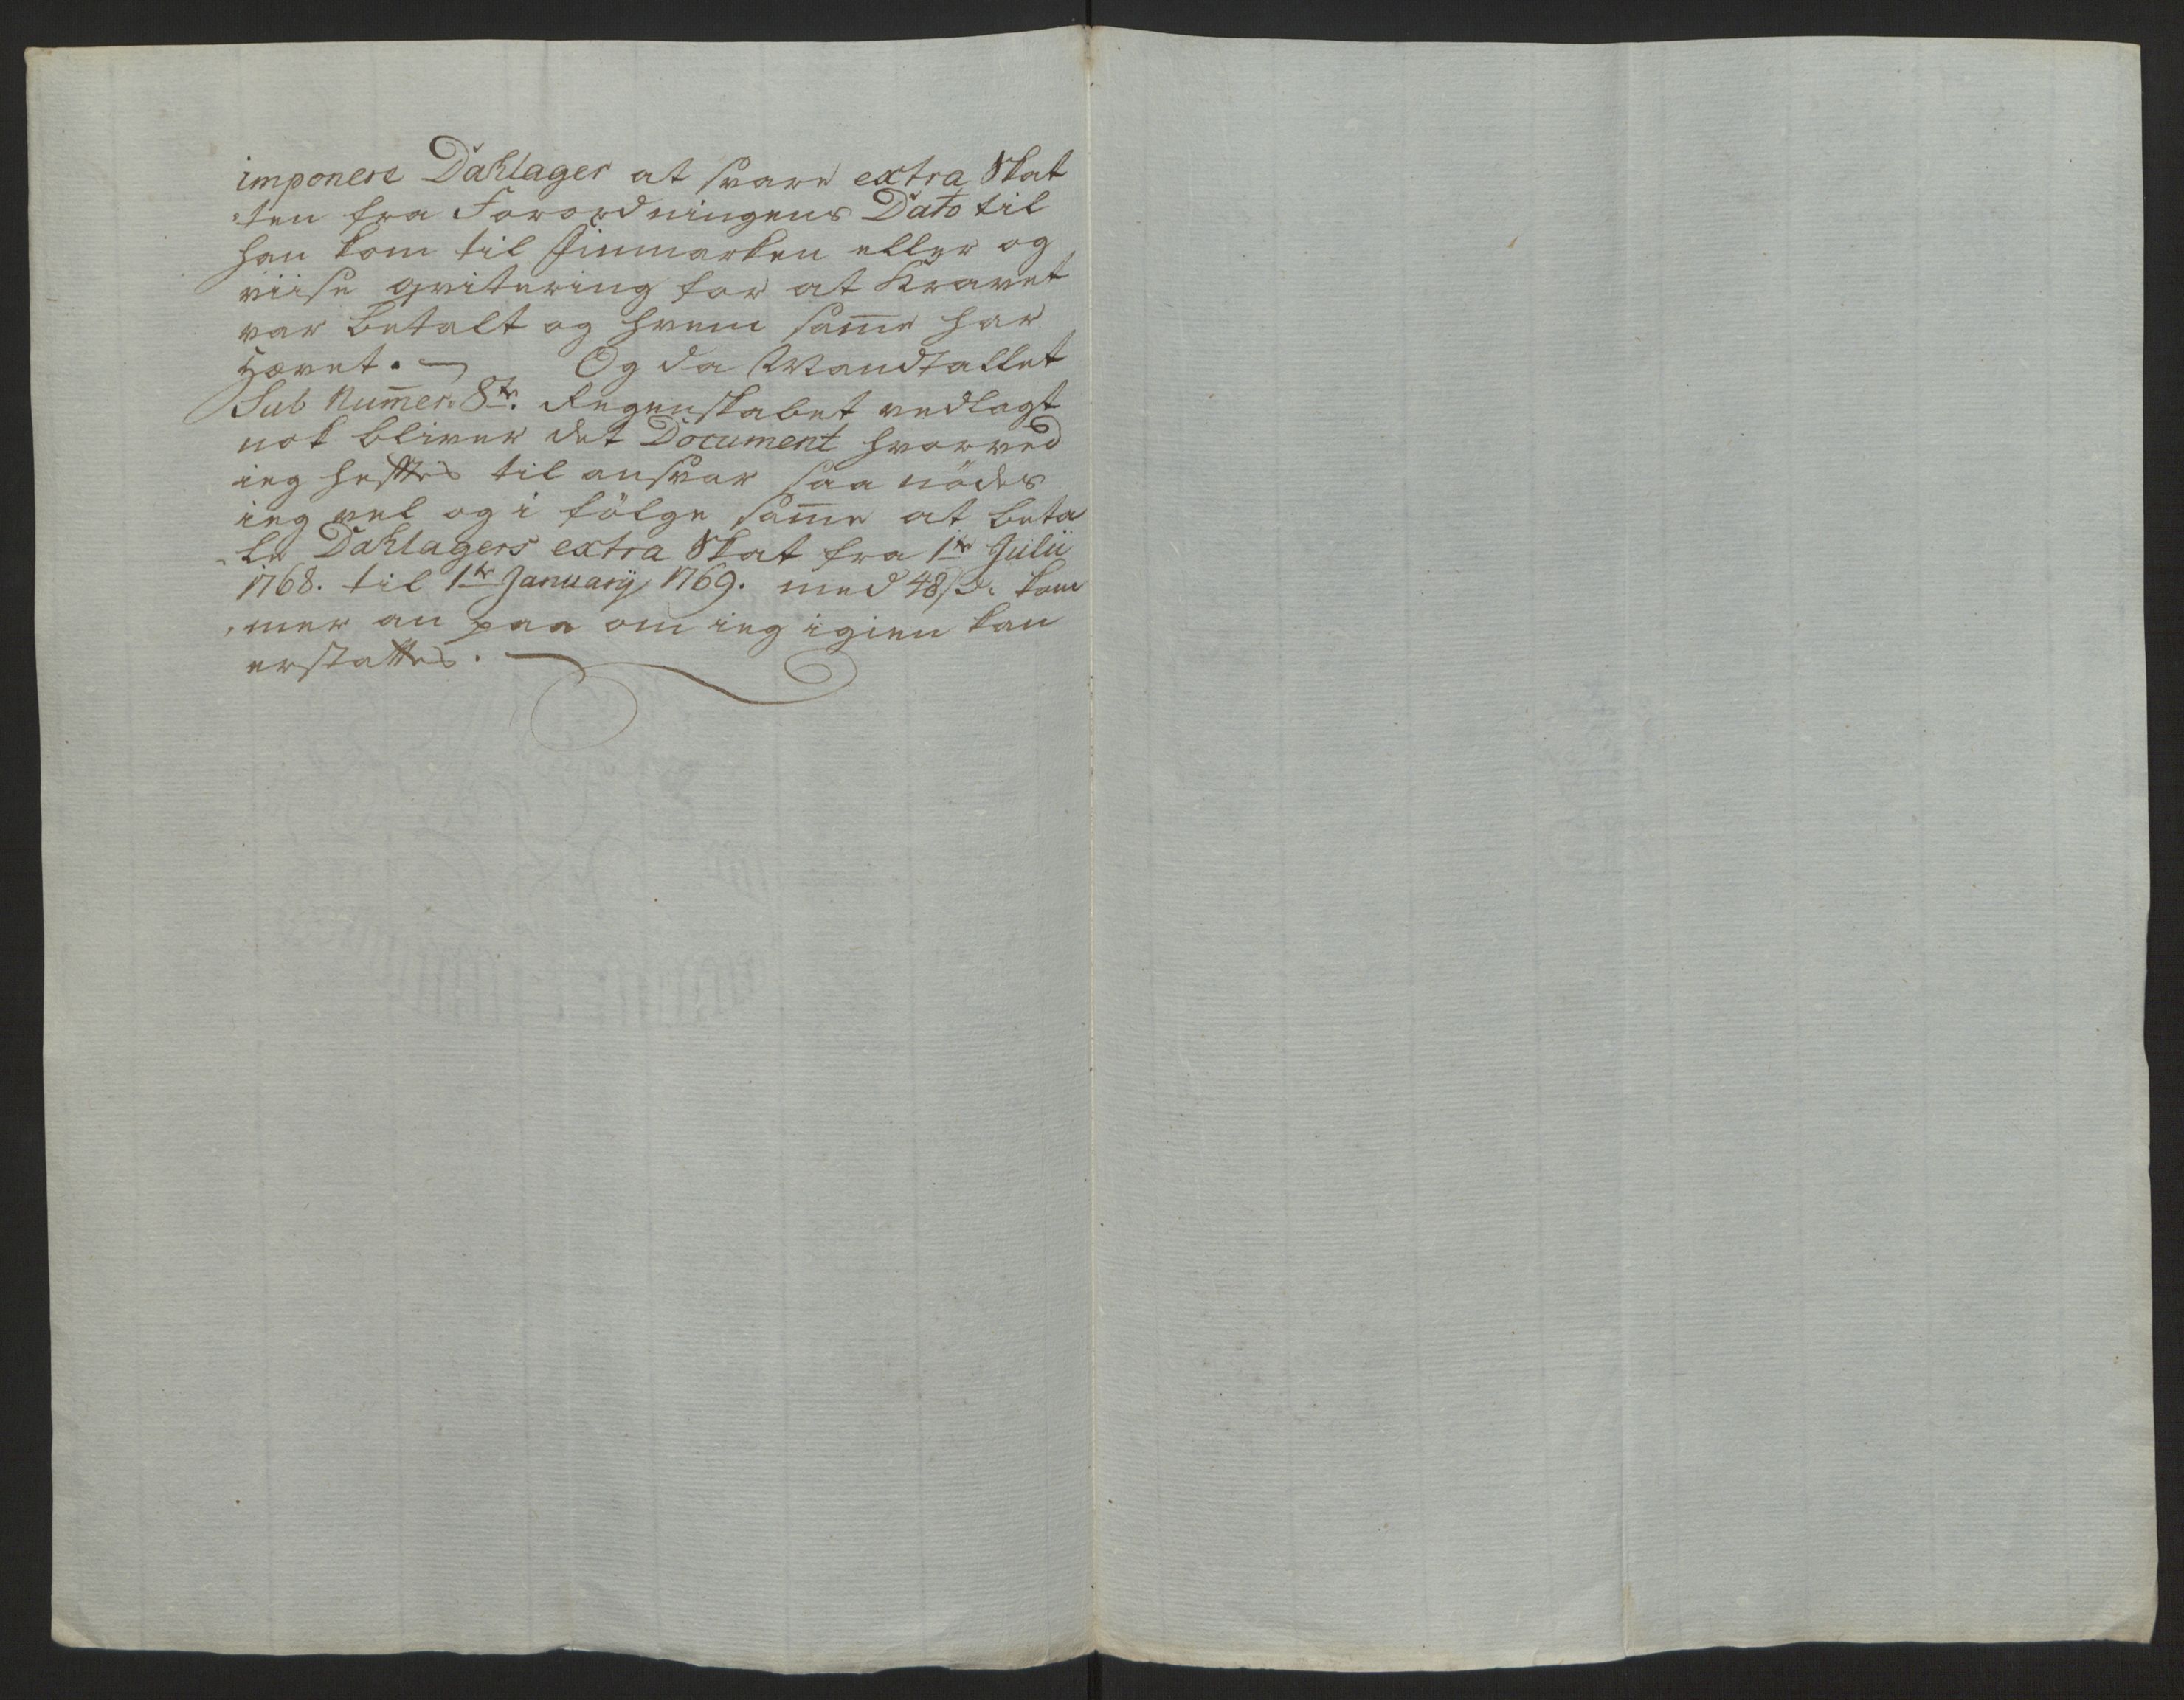 imponere Dahlager at svare extra Skat
-ten fra Forordningens Dato til
han kom til Finmarken eller og
viise qvitering for at Kravet
var betalt og hvem sam̄e har
Hævet. — Og da Mandtallet
Sub Num̄er: 8de. Regenskabet vedlagt
nok bliver det Document hvorved
ieg heftes til ansvar saa nödes
ieg vel og i fölge sam̄e at beta
-le Dahlagers extra Skat fra 1te Julii
1768. til 1te Januarij 1769. med 48 s. kom
-mer an paa om ieg igien kan
erstattes.